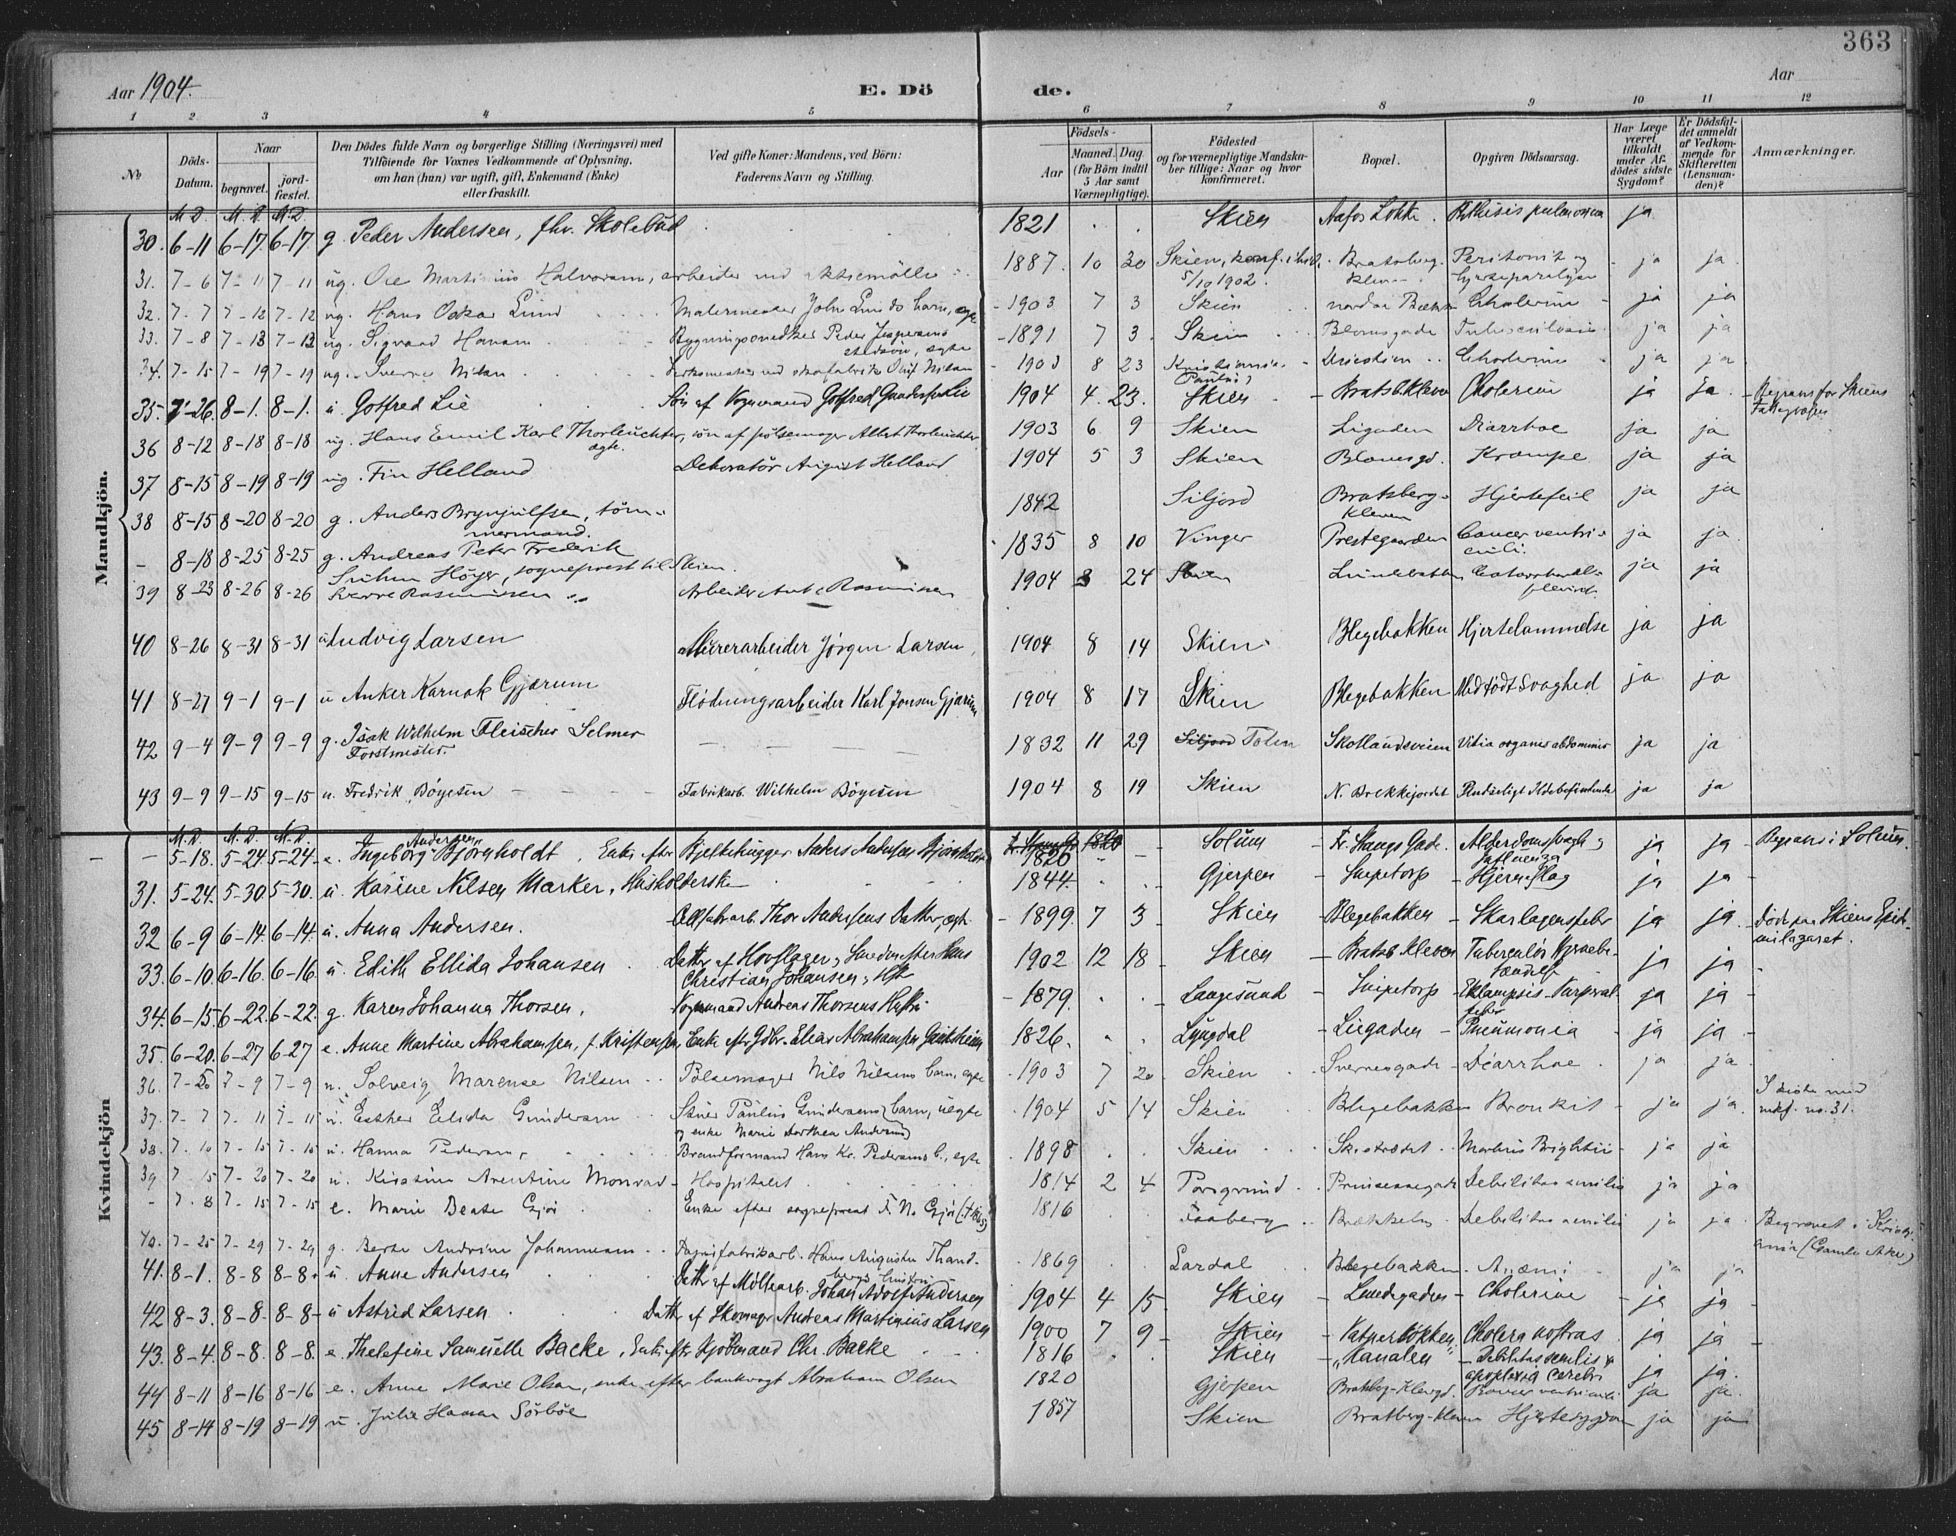 363
Aar 1904.
E. Döde.
Aar
1 2 3 4 5 6 7 8 9 10 11 12
No
Döds-Datum.
Naar
begravet.
jordfæstet.
Den Dödes fulde Navn og borgerlige Stilling (Næringsvei) med
Tilföiende for Voxnes Vedkommende af Oplysning,
om han (hun) var ugift, gift, Enkemand (Enke)
eller fraskilt.
Ved gifte Koner: Mandens, ved Börn:
Faderens Navn og Stilling.
Födsels-
Aar
Maaned. Dag
(for Börn indtil
5 Aar samt
Værnepligtige).
Födested
og for værnepligtige Mandskaber tillige: Naar og hvor
konfirmeret.
Bopæl.
Opgiven Dödsaarsag.
Har Læge
været
tilkaldt
under Afdödes sidste
Sygdom?
Er Dödsfaldet anmeldt
af Vedkommende for
Skifteretten
(Lensmanden)?
Anmærkninger.
Mandkjön.
M. D. M. D. M. D.
30. 6-11 6-17. 6-17. g. Peder Andersen, fhv. Skolebud 1821 Skien Aafos Løkke. Phthisis pulmonum ja
31. 7-6 7-11 7-11 ug. Ole Martinius Halvorsen, arbeider ved aktiemölle 1887. 10 30 Skien, konf. i Skien 5/10 1902. Bratsberg-kleven Peritonit og Hjerteparalyse ja ja
32. 7-7 7-12 7-12 ug. Hans Oskar Lund Malermester John Lunds barn, egte 1903 7 3 Skien nordre Brække Cholerine ja ja
33. 7-8 7-13 7-13 ug. Sigvard Hansen Bygningssnedker Peder Jespersens stedsön, egte 1891 7 3 Skien Blomsgade Tuberculosis ja ja
34. 7-15 7-19 7-19 ug. Sverre Nilsen Verksmester ved skofabrik Olaf Nilsen 1903 8 23 Kristiania Cholerine ja ja
35. 7-26. 8-1. 8-1. u. Gotfred Lie Søn af Vognmand Gotfred Gundersen Lie 1904 4. 23. Skien Bratsb.kleven Cholerine ja ja. Begrav. fra Skiens
36 8-12 8-18 8-18 ug. Hans Emil Karl Thorleuchter, sön af pölsemager Albert Thorleuchter egte. 1903 6 9 Skien Ligaden Diarrhoe ja ja
37 8-15 8-19 8-19 ug. Fin Helland Dekoratør August Helland 1904 5 3 Skien Blomsgd. Krampe ja ja
38 8-15 8-20 8-20 g. Anders Brynjulfsen, tömmermand. 1842 Siljord Bratsberg-kleven Hjertefeil ja ja
- 8-18 8-25 8-25 g. Andreas Peter Frederik Suhm Höyer, sogneprest til Skien. 1835 8 10 Vinger Prestegaarden Cancer ventriculi. ja ja
39 8-23 8-26 8-26 Sverre Rasmussen Arbeider Ant. Rasmussen 1904 3 24 Skien Lundebakken ja ja
40 8-26 8-31 8-31 u Ludvig Larsen Murerarbeider Jørgen Larsen 1904 8 14 Skien Blegebakken Hjertelammelse ja ja
41 8-27 9-1 9-1 u Anker Karnak Gjærum Flødningsarbeider Karl Jonsen Gjærum 1904 8 17 Skien Blegebakken Medfödt Svaghed ja ja
42 9-4 9-9 9-9 g. Isak Wilhelm Fleischer Selmer Forstmester 1832 11 29 Siljord Toten Skotlandsveien Vitia organis abdominis ja ja
43 9-9 9-15 9-15 u. Fredrik Böyesen Fabrikarb. Wilhelm Böyesen 1904 8 19 Skien N. Brekkejordet Pludseligt Ildebefindende ja ja
Kvindekjön
M. D. M. D. M. D.
- 5-18. 5-24. 5-24. e. Ingeborg Andersen Bjørnholdt, Enke efter Bjelkehugger Anders Andersen Bjørnholdt 1820 1826 Solum Fr. Stangs Gade. Alderdomssvagh. og Influenza ja ja Begrav. i Solum.
31. 5-24. 5-30. 5-30. u. Karine Nilsen Marker, Husholderske 1844. Gjerpen Snipetorp Hjerneslag ja ja
32 6-9 6-14. 6-14. u. Anna Andersen. Thor Andersens Datter, egte. 1899. 7 3 Skien Blegebakken Skarlagensfeber ja ja Död paa Skiens Epidemilazaret.
33. 6-10. 6-16. 6-16 u. Edith Ellida Johansen Datter af Hovslager, Smedemester Hans Christian Johansen 1902 12 18 Skien Bratsb.kleven Tuberculös Hjernebetændelse ja ja
34. 6-15. 6-22. 6-22. g. Karen Johanna Thorsen, Vognmand Andreas Thorsens Hustru 1879. Langesund Snipetorp Eklampsis. Purperalfeber ja ja
35. 6-20. 6-27 6-27 e. Anne Martine Abrahamsen, f. Kristensen, Enke efter Elias Abrahamsen 1826. Lyngdal Liegaden Pneumonia ja ja
36. 7-5 7-9 7-9 u. Solveig Marense Nilsen Pølsemager Nils Nilsens barn, egte 1903 7 20 Skien Sverresgade Diarrhoe ja ja
37. 7-7 7-11 7-11 u. Esther Elida Gundersen Skiver Paulus Gundersens barn, uegte og enke Marie Dorthea Andersen 1904 5 14 Skien Blegebakken Bronkit ja ja. I kiste med mkj. no. 31.
38. 7-10 7-15 7-15 u. Hanna Pedersen, Brandformand Hans Kr. Pedersens b., egte 1898 Skien Skistrædet Morbus Brightii ja ja
39 7-15 7-20 7-20 u. Kirstine Arentine Monrad Hospitalet 1814 2 4 Porsgrund Prinsessegade Debilitas senilis ja ja
- 7-8 7-15 7-15 e. Marie Beate Gjör Enke efter sogneprest F. N. Gjör 1816 Faaberg Brekkeby Debilitas senilis ja ja Begravet i Kristiania (Gamle Aker)
40. 7-25 7-29 7-29 g. Berte Andrine Johannesen Papirfabrikarb. Hans Augustin Thandbergs hustru 1869 Lardal Blegebakken Anæmi ja ja
41. 8-1. 8-8 8-8. u. Anne Andersen Datter af Møllearb. Johan Adolf Andersen 1904 4 15 Skien Lundegaden Cholerine ja ja
42 8-3. 8-8. 8-8- u Astrid Larsen Datter af Skomager Andreas Martinius Larsen 1900 7 9 Skien Vatperløkken Cholera nostras ja ja
43. 8-4. 8-8. 8-8. e. Thelefine Samuelle Backe, Enke efter Kjøbmand Chr. Backe 1816 Skien "Kanalen" Debilitas senilis & apoplexia cerebri ja ja.
44 8-11 8-16 8-16 e. Anne Marie Olsen, enke efter bankvagt Abraham Olsen 1820 Gjerpen Bratsbg-klevgd. Cancer ventriculi ja ja.
45 8-14 8-19 8-19 u. Julie Hanna Sörböe 1857 Skien Bratsberg-kleven Hjertesygdom ja ja